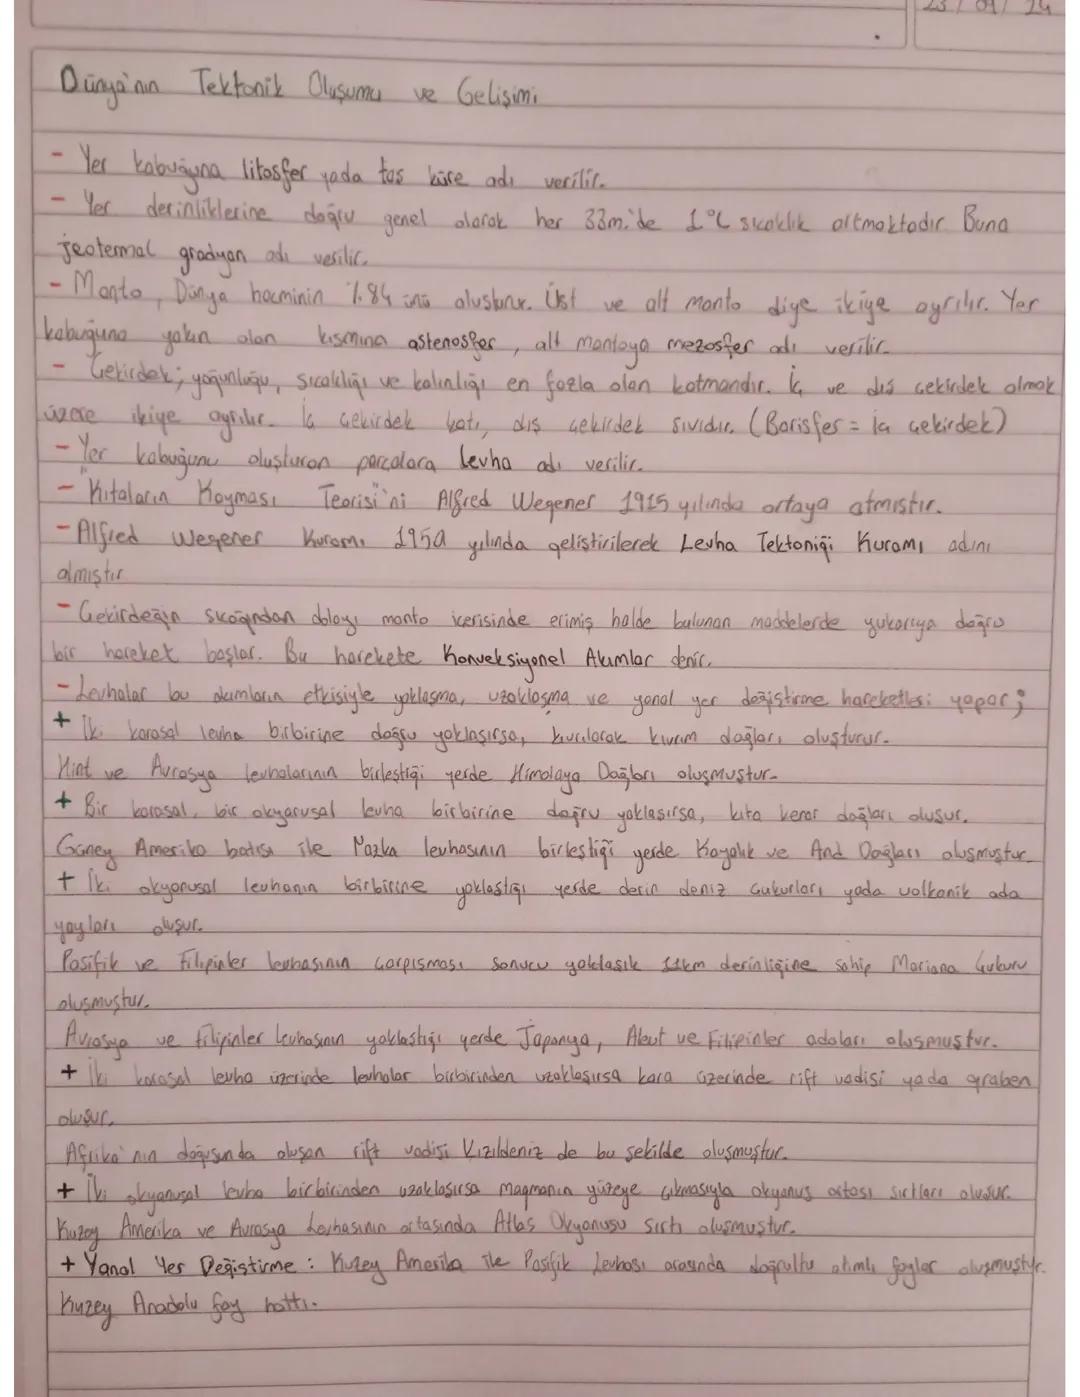 23 / 09 / 24
Dünya'nın Tektonik Oluşumu ve Gelişimi
- Yer kabuğuna litosfer yada taş küre adı verilir.
- Yer derinliklerine doğru genel olarak her 33m.'de 1°C sıcaklık artmaktadır. Buna
jeotermal gradyan adı verilir.
- Manto, Dünya hacminin %84'ünü oluşturur. Üst ve alt manto diye ikiye ayrılır. Yer
kabuğuna yakın olan kısmına astenosfer, alt mantoya mezosfer adı verilir.
- Çekirdek; yoğunluğu, sıcaklığı ve kalınlığı en fazla olan katmandır. İç ve dış çekirdek olmak
üzere ikiye ayrılır. İç çekirdek katı, dış çekirdek sıvıdır. (Barisfer = iç çekirdek)
- Yer kabuğunu oluşturan parçalara levha adı verilir.
- "Kıtaların Kayması Teorisi"ni Alfred Wegener 1915 yılında ortaya atmıştır.
- Alfred Wegener Kuramı 1950 yılında geliştirilerek Levha Tektoniği Kuramı adını
almıştır
- Çekirdeğin sıcağından dolayı manto içerisinde erimiş halde bulunan maddelerde yukarıya doğru
bir hareket başlar. Bu harekete Konveksiyonel Akımlar denir.
- Levhalar bu akımların etkisiyle yaklaşma, uzaklaşma ve yanal yer değiştirme hareketleri yapar;
+ İki karasal levha birbirine doğru yaklaşırsa, kıvrılarak kıvrım dağları oluşturur.
Hint ve Avrasya levhalarının birleştiği yerde Himalaya Dağları oluşmuştur.
+ Bir karasal, bir okyanusal levha birbirine doğru yaklaşırsa, kıta kenar dağları oluşur.
Güney Amerika batısı ile Nazka levhasının birleştiği yerde Kayalık ve And Dağları oluşmuştur.
+ İki okyanusal levhanın birbirine yaklaştığı yerde derin deniz çukurları yada volkanik ada
yayları oluşur.
Pasifik ve Filipinler levhasının çarpışması sonucu yaklaşık 11km derinliğine sahip Mariana Çukuru
oluşmuştur.
Avrasya ve Filipinler levhasının yaklaştığı yerde Japonya, Aleut ve Filipinler adaları oluşmuştur.
+ İki karasal levha üzerinde levhalar birbirinden uzaklaşırsa kara üzerinde rift vadisi yada graben
oluşur.
Afrika'nın doğusunda oluşan rift vadisi Kızıldeniz de bu şekilde oluşmuştur.
+ İki okyanusal levha birbirinden uzaklaşırsa magmanın yüzeye çıkmasıyla okyanus ortası sırtları oluşur.
Kuzey Amerika ve Avrasya Levhasının ortasında Atlas Okyanusu Sırtı oluşmuştur.
+ Yanal Yer Değiştirme : Kuzey Amerika ile Pasifik Levhası arasında doğrultu atımlı faylar oluşmuştur.
Kuzey Anadolu fay hattı.